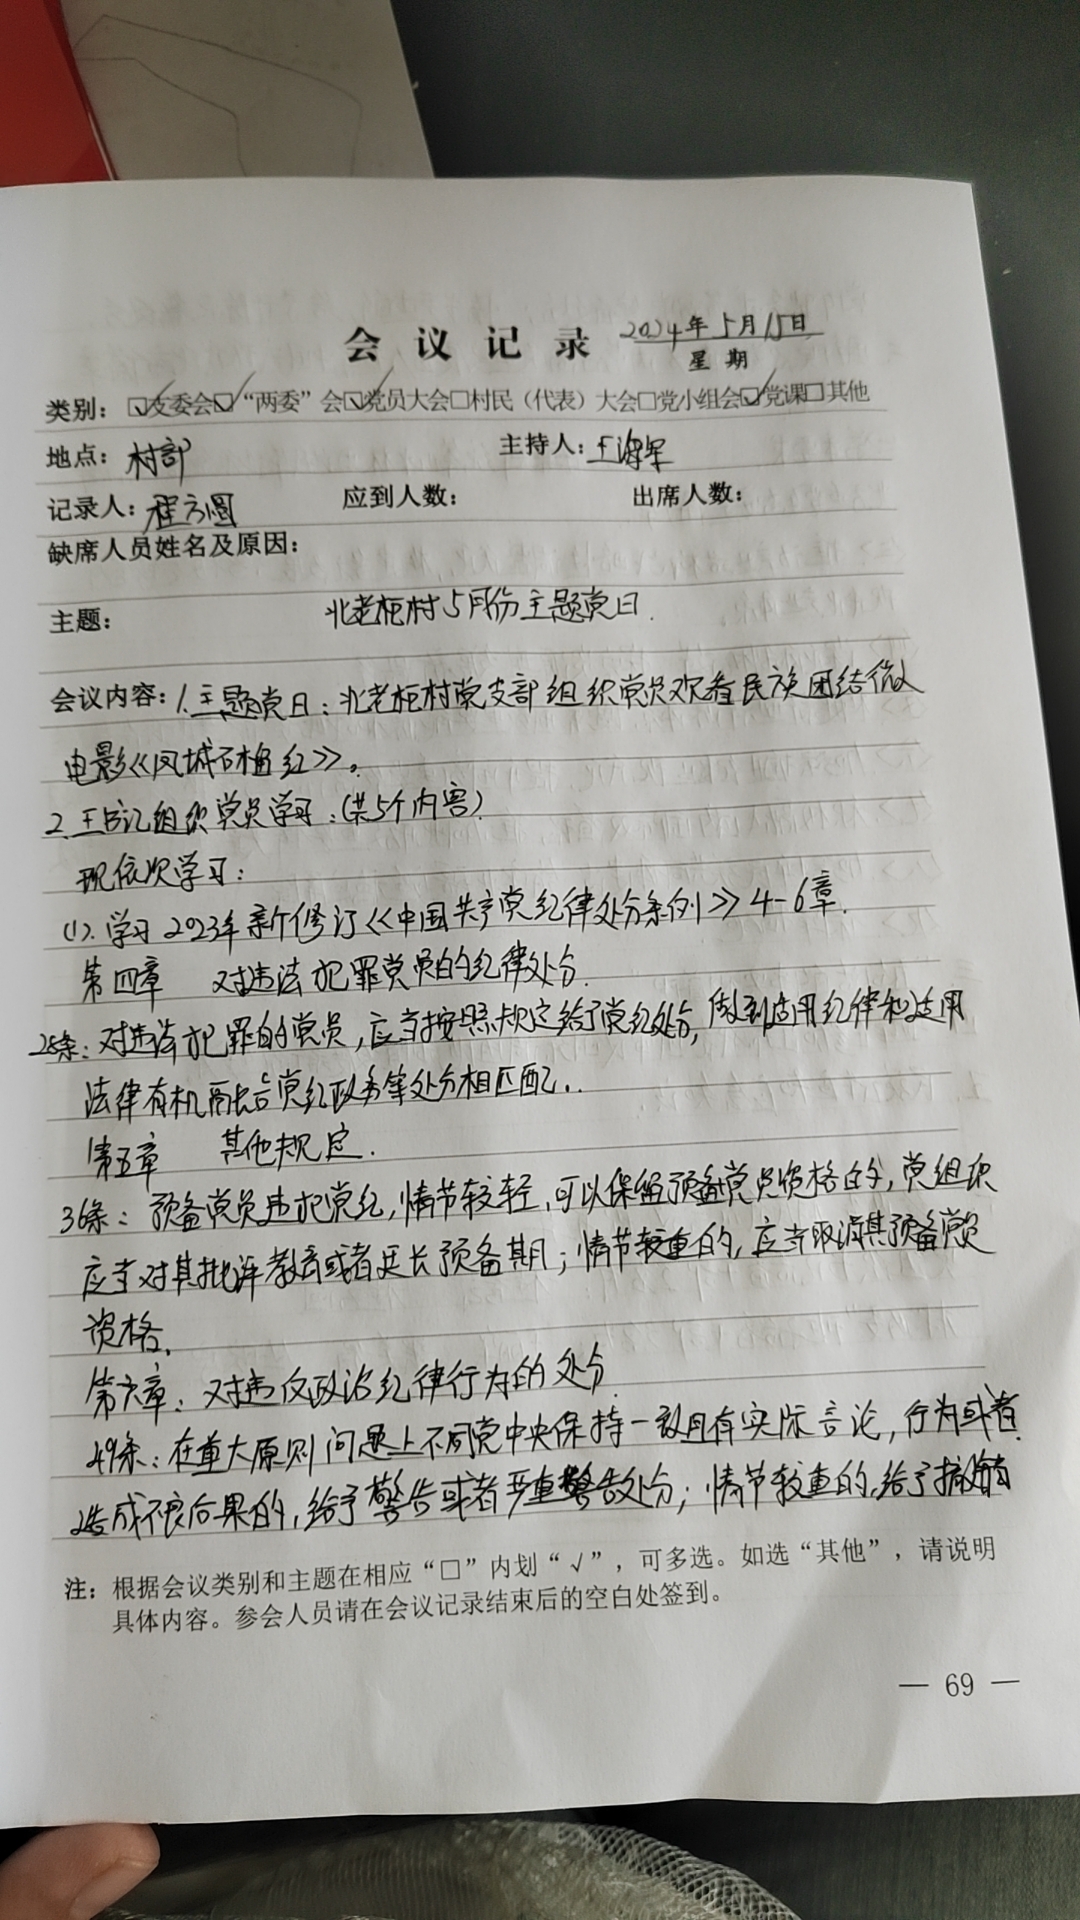 会议记录 2024年5月15日
星期
类别：☑支委会☑“两委”会☑党员大会□村民（代表）大会□党小组会☑党课□其他
地点：村部 主持人：王海军
记录人：程方圆 应到人数： 出席人数：
缺席人员姓名及原因：
主题： 北老柜村5月份主题党日.
会议内容：1.主题党日：北老柜村党支部组织党员观看民族团结微
电影《凤城石榴红》。
2.王书记组织党员学习：(共5个内容).
现依次学习：
(1).学习2023年新修订《中国共产党纪律处分条例》4-6章.
第四章 对违法犯罪党员的纪律处分.
28条：对违法犯罪的党员，应当按照规定给予党纪处分，做到适用纪律和适用
法律有机融合党纪政务等处分相匹配..
第五章 其他规定.
36条：预备党员违犯党纪，情节较轻，可以保留预备党员资格的，党组织
应当对其批评教育或者延长预备期；情节较重的，应当取消其预备党员
资格.
第六章：对违反政治纪律行为的处分.
49条：在重大原则问题上不同党中央保持一致且有实际言论，行为或者
造成不良后果的，给予警告或者严重警告处分；情节较重的，给予撤销
注：根据会议类别和主题在相应“□”内划“√”，可多选。如选“其他”，请说明
具体内容。参会人员请在会议记录结束后的空白处签到。
— 69 —